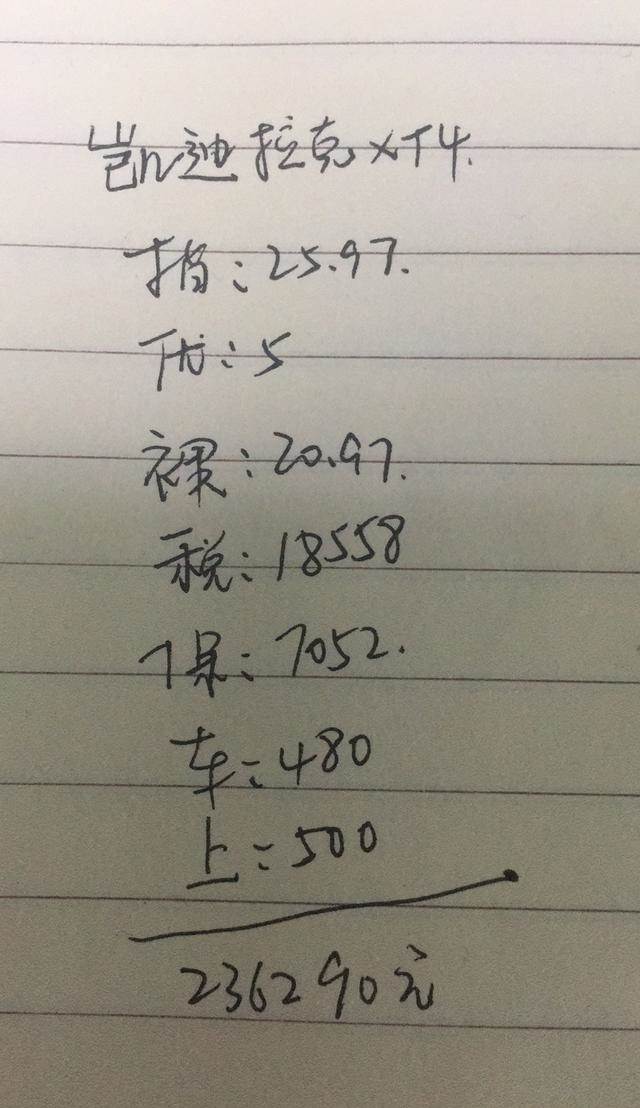 凯迪拉克XT4.
指:25.97.
优:5
裸:20.97.
税:18558
保:7052.
车:480
上:500
236290元